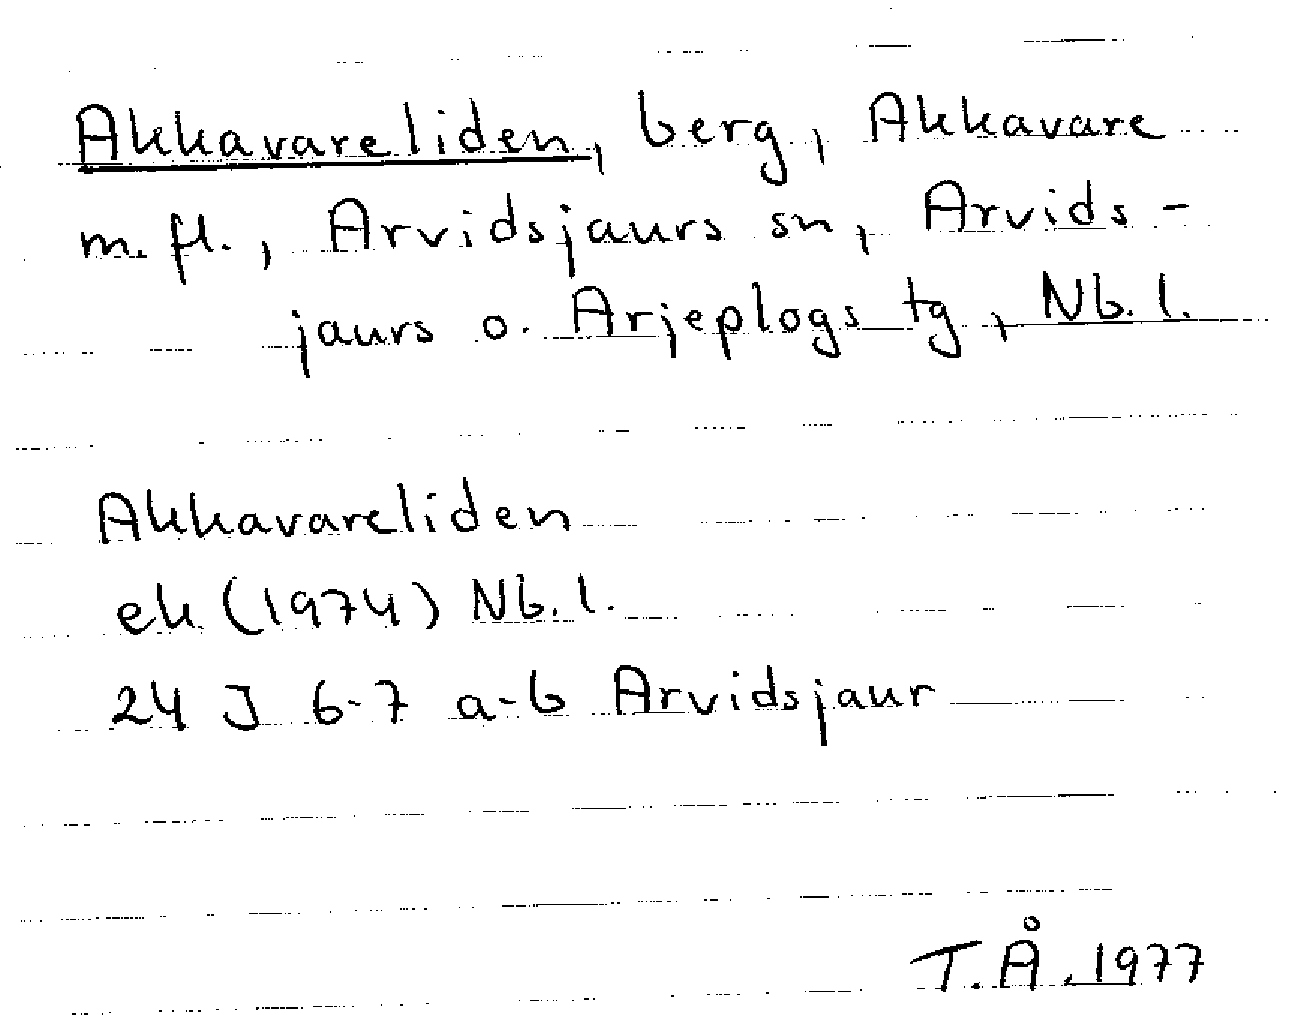 Akkavareliden, berg, Akkavare
m. fl., Arvidsjaurs sn, Arvids-
jaurs o. Arjeplogs tg, Nb. l.
Akkavareliden
ek (1974) Nb. l.
24 J 6-7 a-b Arvidsjaur
T. Å. 1977